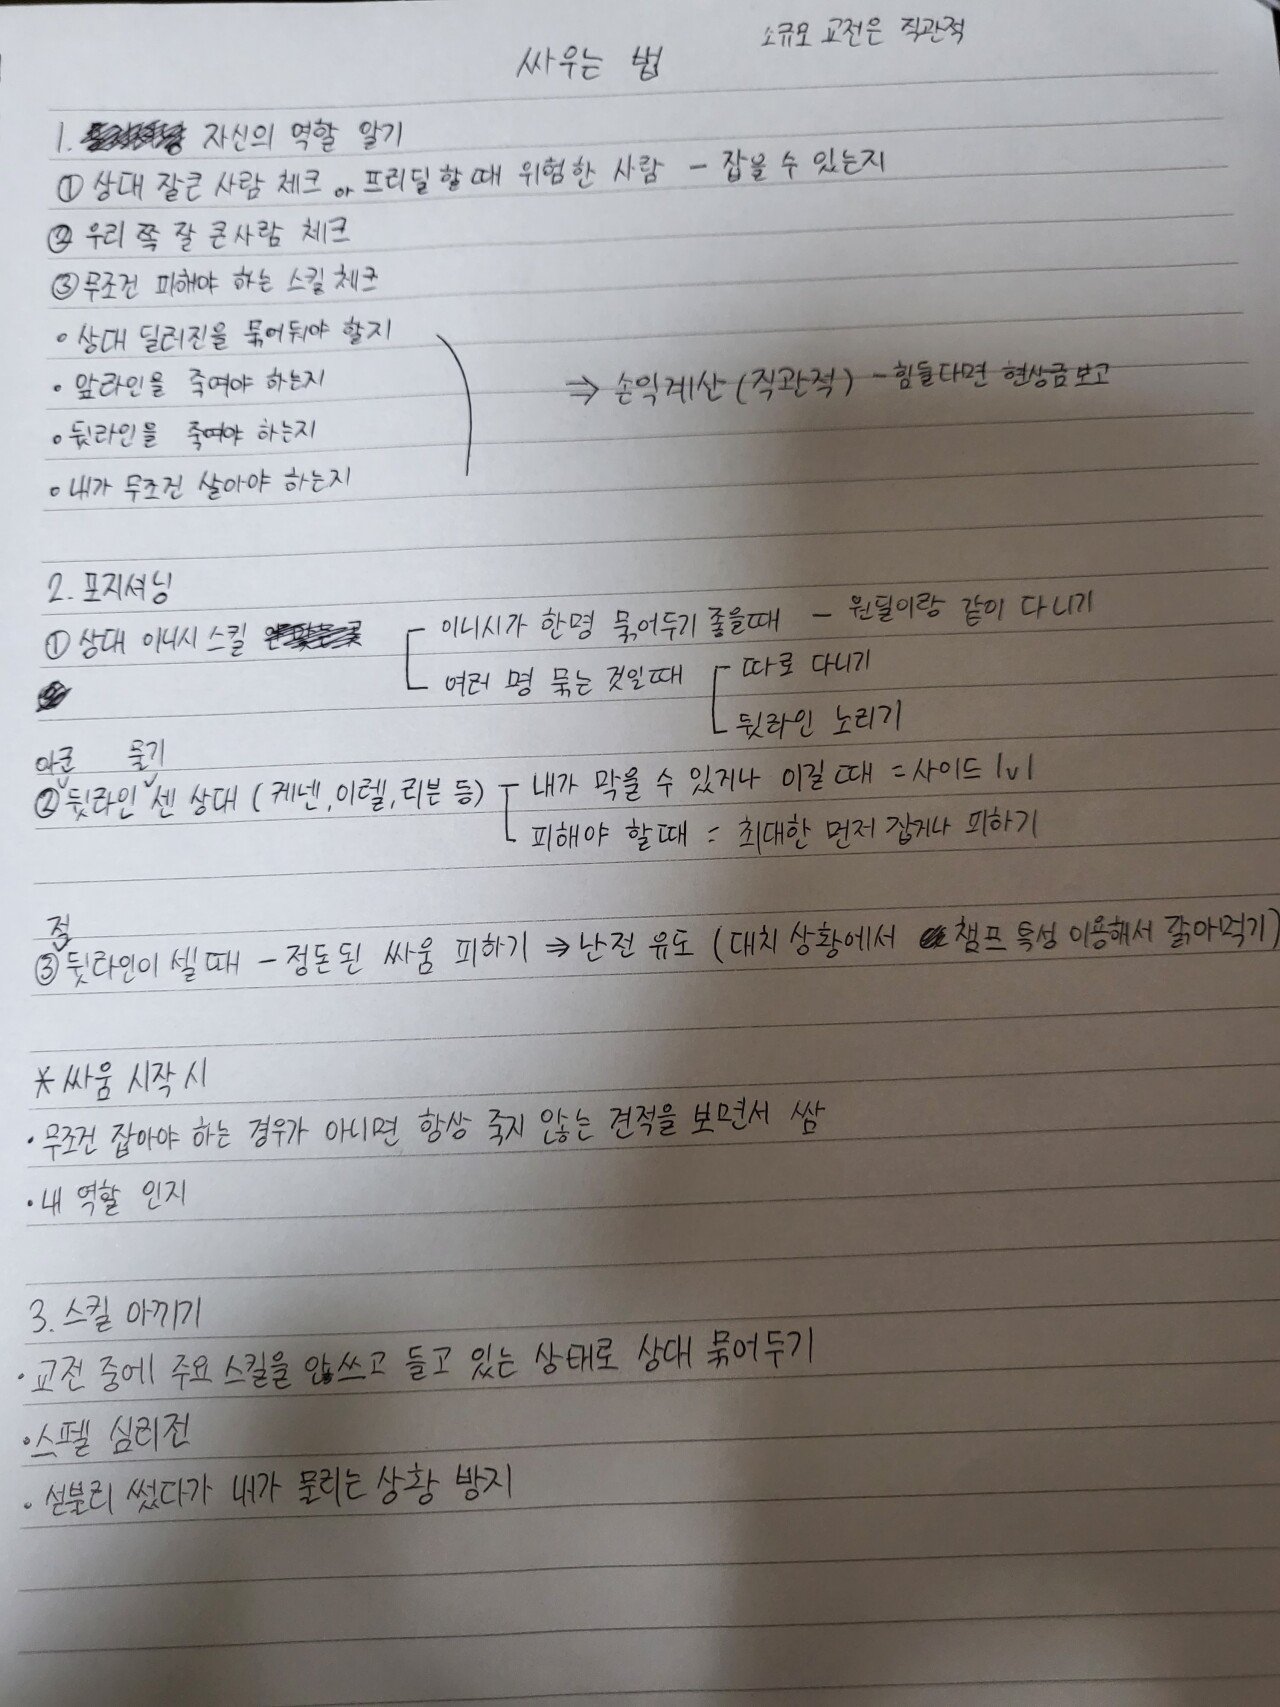 소규모 교전은 직관적
싸우는 법
1. 자신의 역할 알기
① 상대 잘큰 사람 체크 or 프리딜 할때 위험한 사람 - 잡을 수 있는지
② 우리 쪽 잘 큰사람 체크
③ 무조건 피해야 하는 스킬 체크
• 상대 딜러진을 묶어둬야 할지
• 앞라인을 죽여야 하는지
⇒ 손익계산 (직관적) - 힘들다면 현상금보고
• 뒷라인을 죽여야 하는지
• 내가 무조건 살아야 하는지
2. 포지셔닝
① 상대 이니시 스킬
이니시가 한명 묶어두기 좋을때 - 원딜이랑 같이 다니기
여러 명 묶는 것일때
따로 다니기
뒷라인 노리기
아군 물기
② 뒷라인 센 상대 (케넨, 이렐, 리븐 등)
내가 막을 수 있거나 이길 때 = 사이드 1v1
피해야 할때 = 최대한 먼저 잡거나 피하기
적
③ 뒷라인이 셀때 - 정돈된 싸움 피하기 ⇒ 난전 유도 (대치 상황에서 챔프 특성 이용해서 갉아먹기)
* 싸움 시작 시
• 무조건 잡아야 하는 경우가 아니면 항상 죽지 않는 견적을 보면서 쌈
• 내 역할 인지
3. 스킬 아끼기
• 교전 중에 주요 스킬을 않쓰고 들고 있는 상태로 상대 묶어두기
• 스펠 심리전
• 섣불리 썼다가 내가 물리는 상황 방지